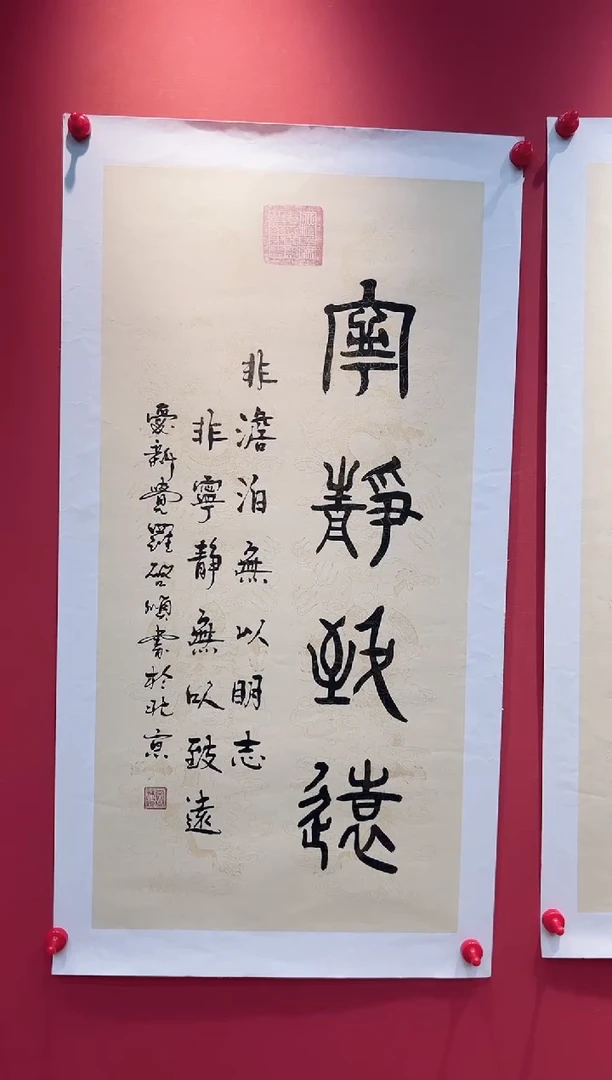 寧靜致遠
非澹泊無以明志
非寧靜無以致遠
愛新覺羅啓順書於北京